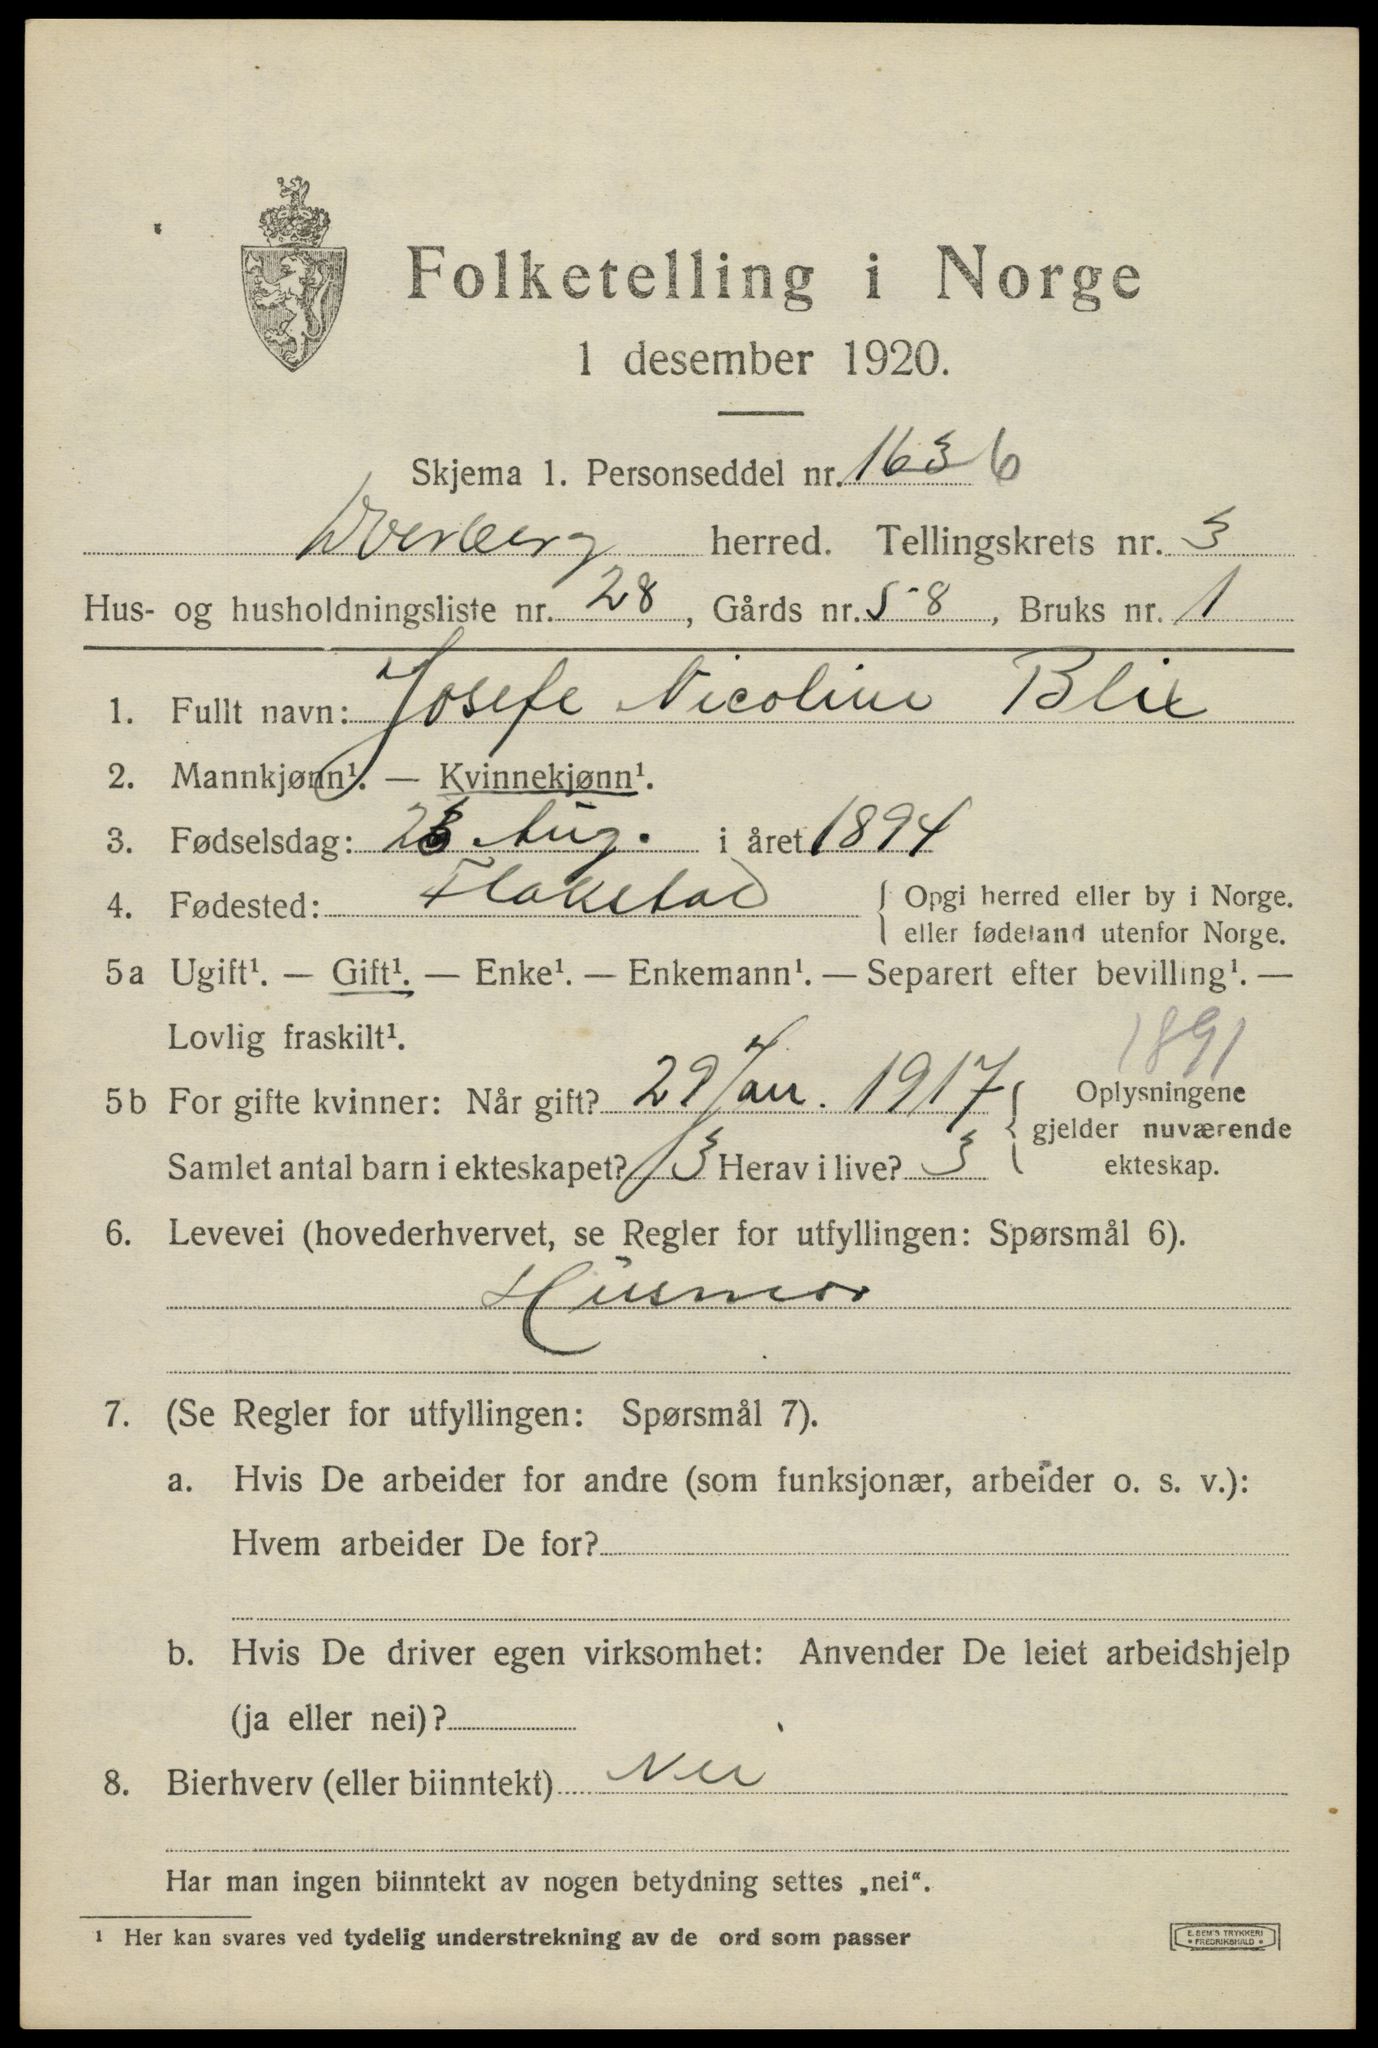 Folketelling i Norge
1 desember 1920.
Skjema 1. Personseddel nr. 163 6
Dverberg herred. Tellingskrets nr. 3
Hus- og husholdningsliste nr. 28, Gårds nr. 58, Bruks nr. 1
1. Fullt navn: Josefe Nicoline Blix
2. Mannkjønn¹. — Kvinnekjønn¹.
3. Fødselsdag: Aug. i året 1894
4. Fødested: Flakstad { Opgi herred eller by i Norge.
eller fødeland utenfor Norge.
5a Ugift¹. — Gift¹. — Enke¹. — Enkemann¹. — Separert efter bevilling¹. —
Lovlig fraskilt¹.
1891
5b For gifte kvinner: Når gift? 29 Jan. 1917 { Oplysningene
gjelder nuværende
Samlet antal barn i ekteskapet? 3 Herav i live? 3 ekteskap.
6. Levevei (hovederhvervet, se Regler for utfyllingen: Spørsmål 6).
Husmor
7. (Se Regler for utfyllingen: Spørsmål 7).
a. Hvis De arbeider for andre (som funksjonær, arbeider o. s. v.):
Hvem arbeider De for?
b. Hvis De driver egen virksomhet: Anvender De leiet arbeidshjelp
(ja eller nei)?
8. Bierhverv (eller biinntekt) Nei
Har man ingen biinntekt av nogen betydning settes „nei“.
¹ Her kan svares ved tydelig understrekning av de ord som passer
E. SEM'S TRYKKERI
FREDRIKSHALD